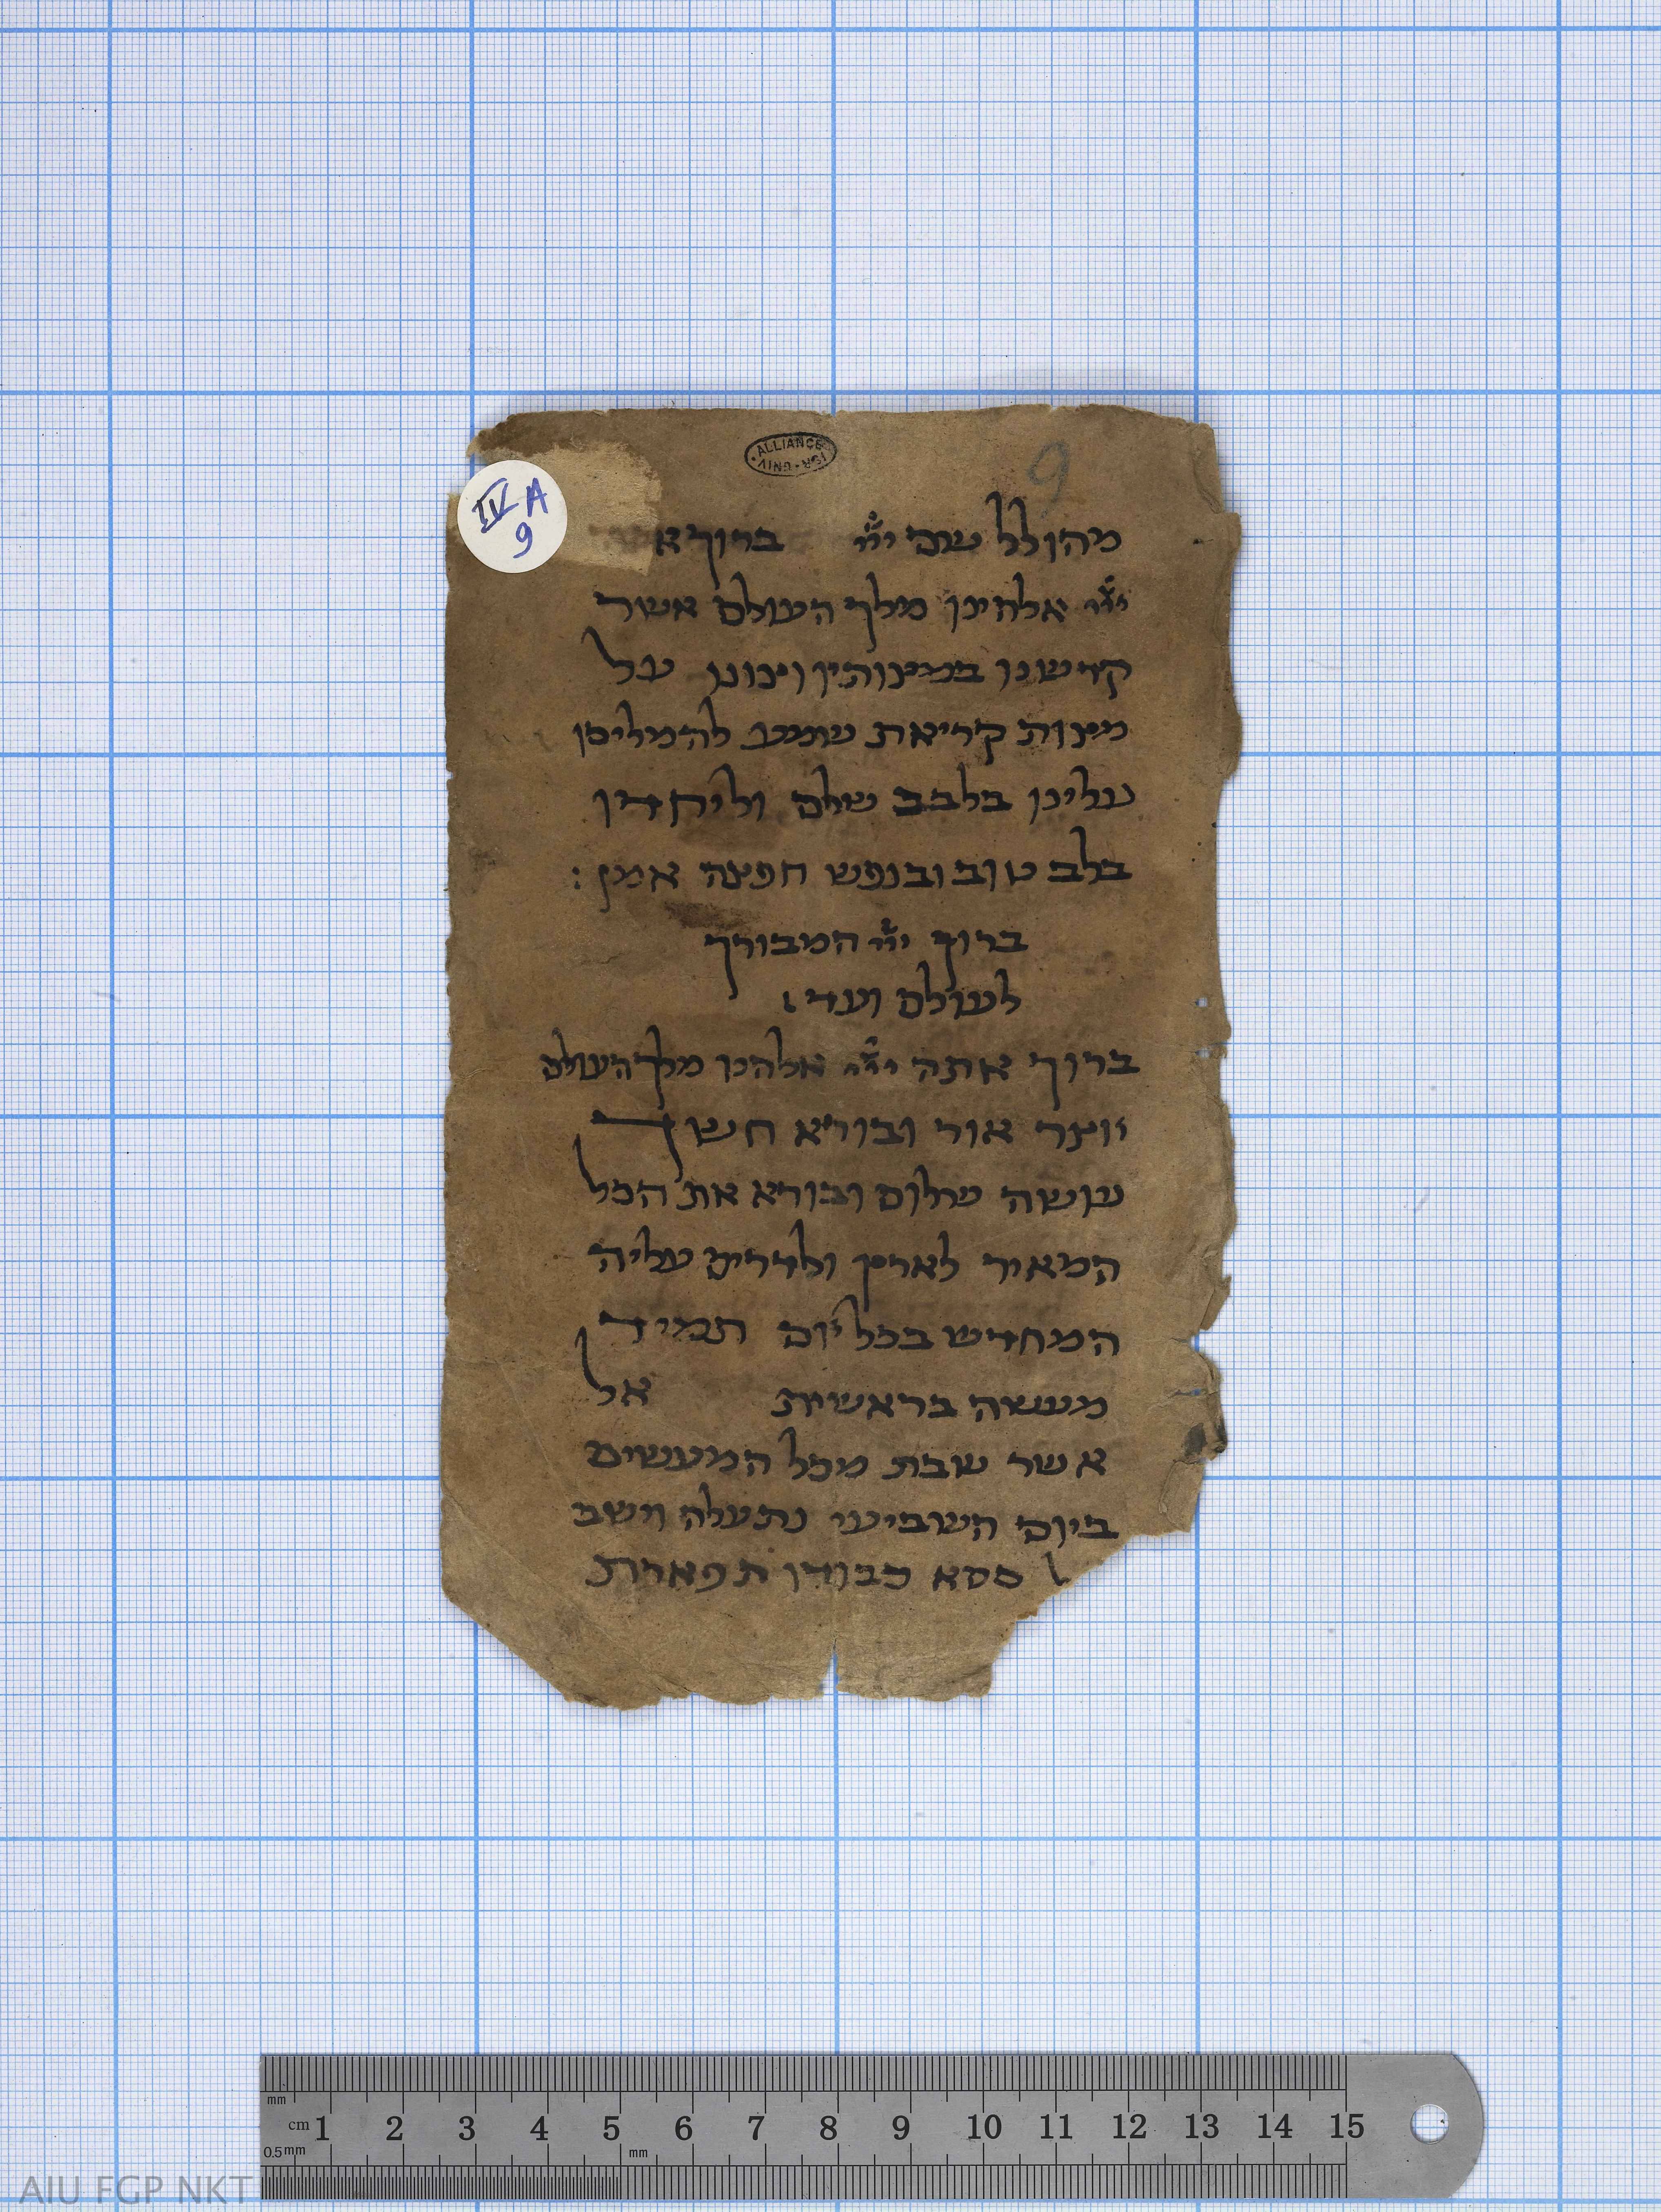 ALLIANCE ISR · UNIV ·
9
IV A
9
מהולל שם ייי ברוך
ייי אלהינו מלך העולם אשר
קדשנו במצותיו וצונו על
מצות קריאת שמע להמליכו
עלינו בלבב שלם וליחדו
בלב טוב ובנפש חפצה אמן :
ברוך ייי המבורך
לעולם ועד
ברוך אתה ייי אלהינו מלך העולם
יוצר אור ובורא חשך
עושה שלום ובורא את הכל
המאיר לארץ ולדרים עליה
המחדש בכל יום תמיד
מעשה בראשית אל
אשר שבת מכל המעשים
ביום השביעי נתעלה וישב
ל כסא כבודו תפארת
mm
cm 1 2 3 4 5 6 7 8 9 10 11 12 13 14 15
0.5mm mm
AIU FGP NKT